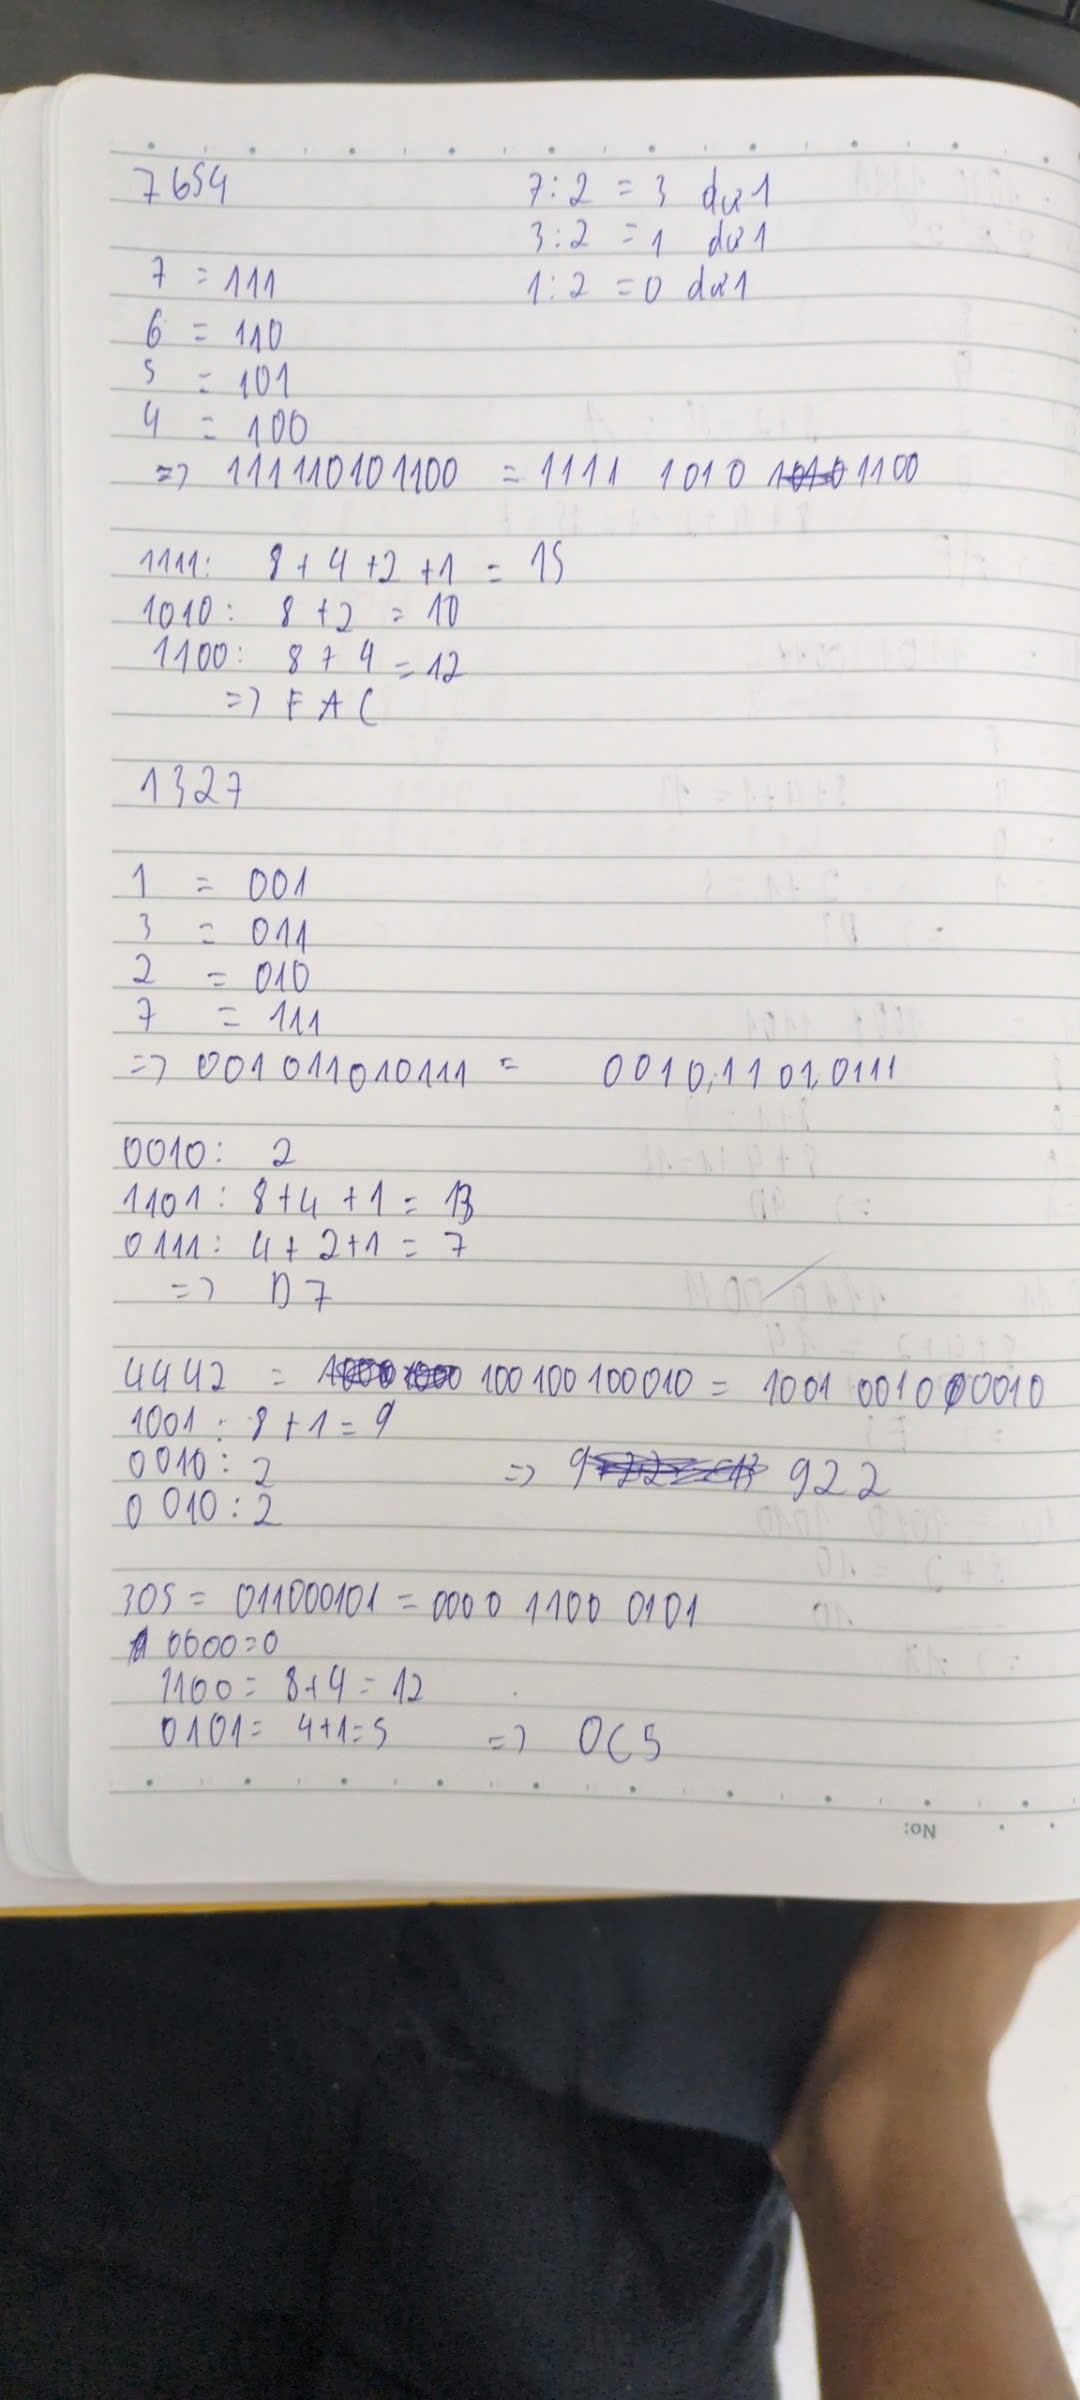 7654
7:2 = 3 dư 1
3:2 = 1 dư 1
7 = 111
1:2 = 0 dư 1
6 = 110
5 = 101
4 = 100
=> 111110101100 = 1111 1010 1100
1111: 8+4+2+1 = 15
1010: 8+2 = 10
1100: 8+4 = 12
=> FAC
1327
1 = 001
3 = 011
2 = 010
7 = 111
=> 001011010111 = 0010,1101,0111
0010: 2
1101: 8+4+1 = 13
0111: 4+2+1 = 7
=> D7
4442 = 100100100010 = 1001 0010 0010
1001: 8+1 = 9
0010: 2 => 922
0010: 2
305 = 011000101 = 0000 1100 0101
0000=0
1100 = 8+4 = 12
0101 = 4+1=5 => 0C5
No: